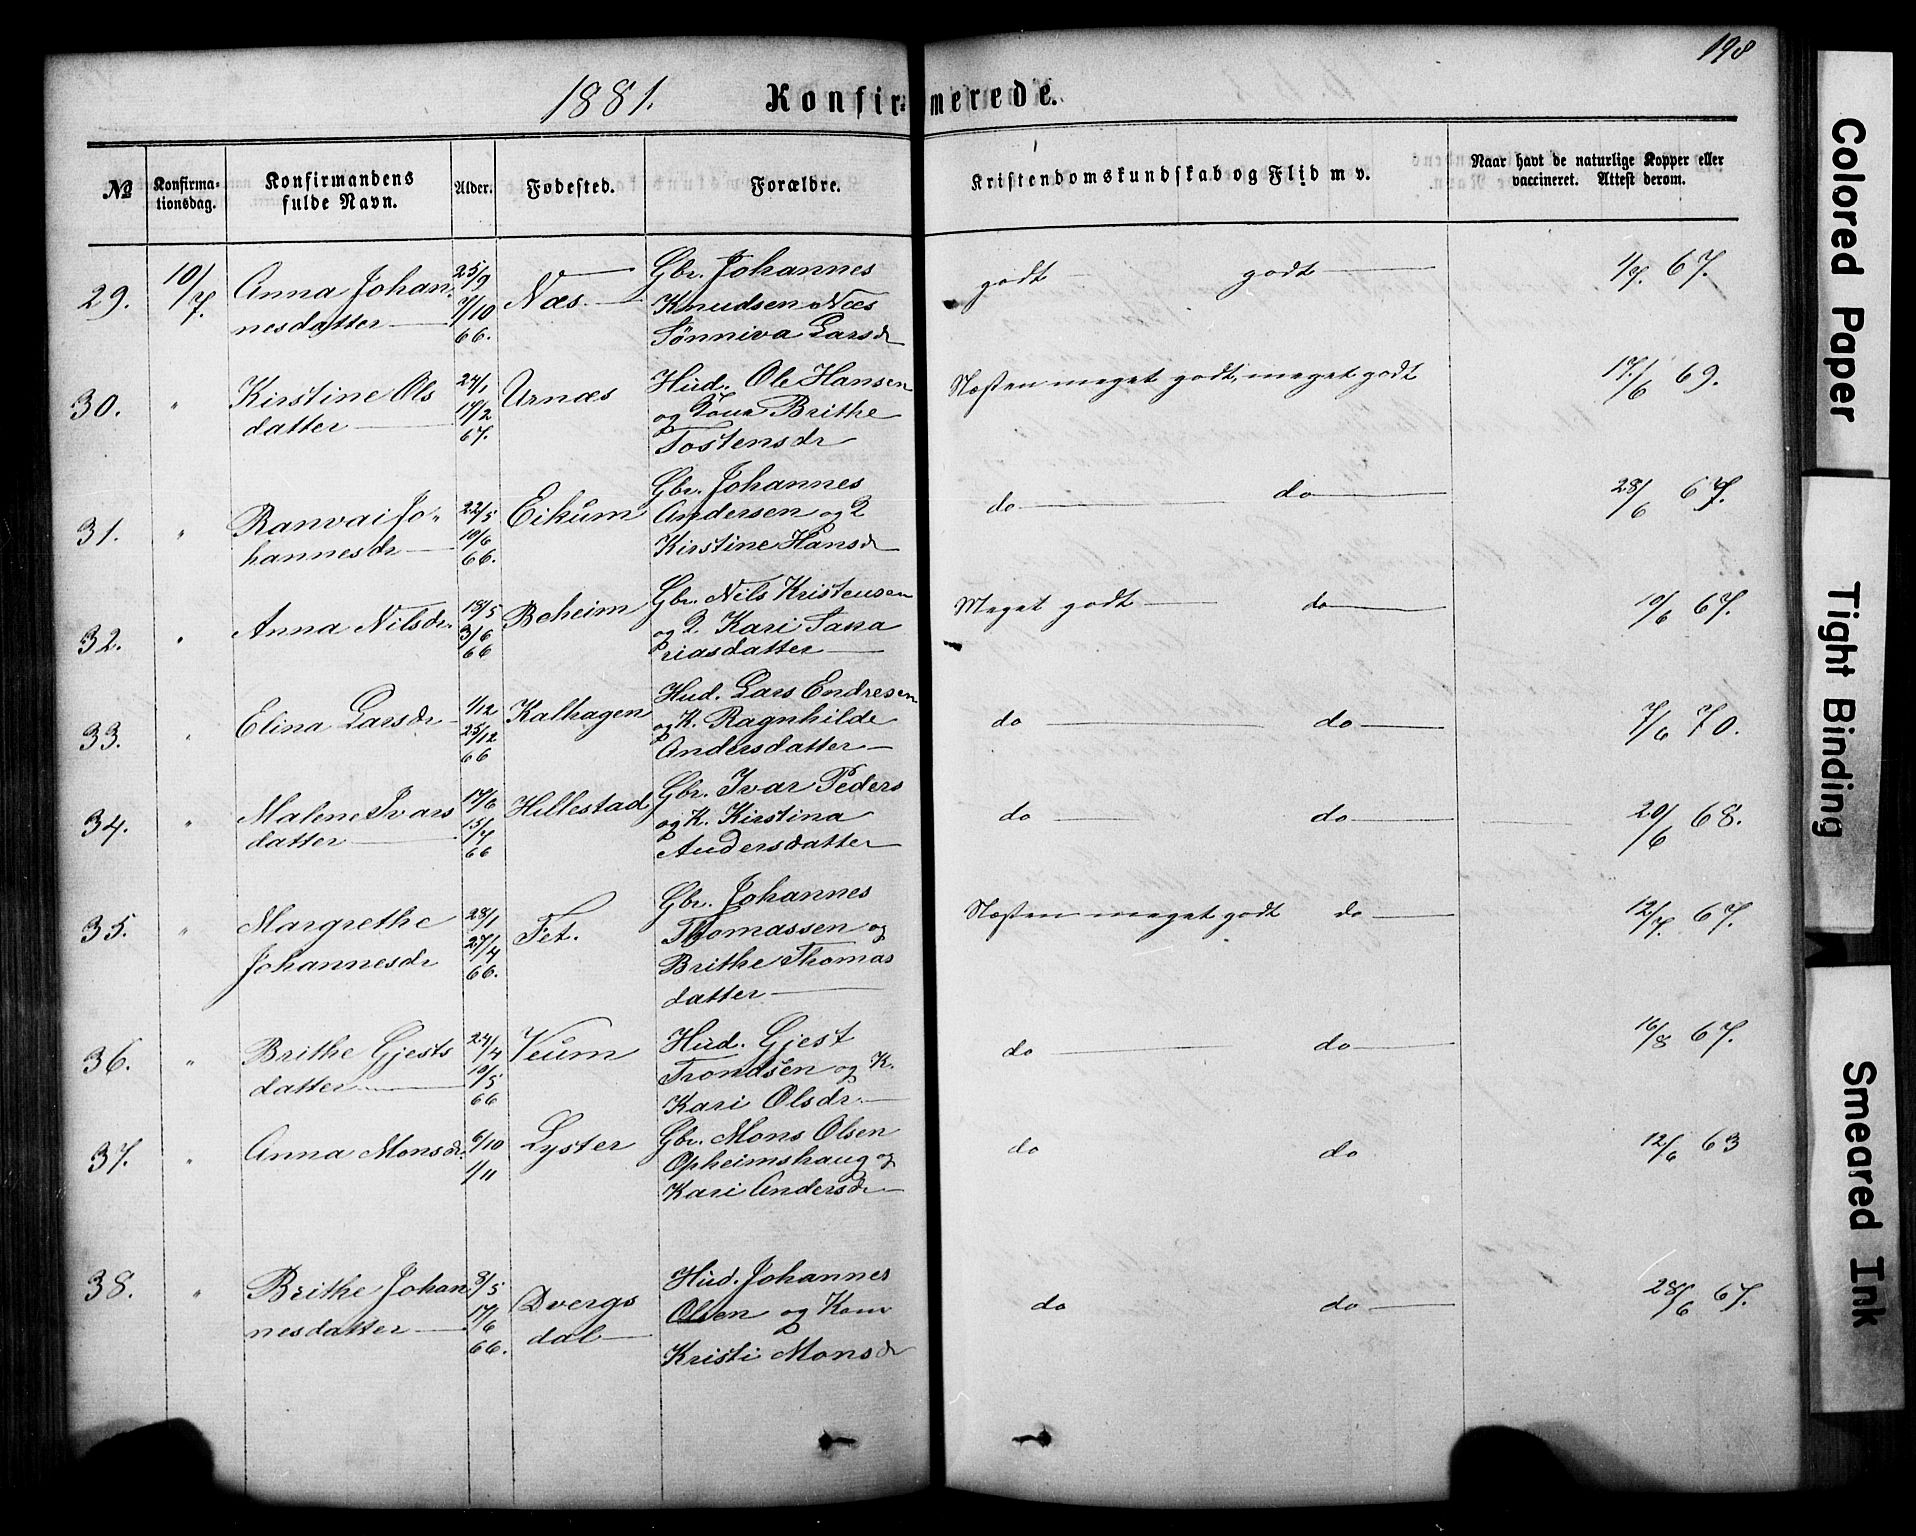 198
1881. Konfirmerede.
№ Konfirmationsdag. Konfirmandens fulde Navn. Alder. Fødested. Forældre. Kristendomskundskab og Flid m v. Naar havt de naturlige Kopper eller vaccineret. Attest derom.
29. 10/7. Anna Johan- 25/9 Næs. Gbr. Johannes godt godt 1/7. 67.
nesdatter 7/10 Knudsen Næs
66. Sønniva Larsdr
30. " Kirstine Ols 24/1 Urnæs Hud. Ole Hansen Næsten meget godt, meget godt 17/6 69.
datter 19/2 og Brithe
67. Tostensdr
31. " Ranvai Jo- 22/5 Eikum Gbr. Johannes do do 28/6 67.
hannesdr 10/6 Andersen og
66. Kirstine Hansdr
32. " Anna Nilsdr. 18/5 Boheim Gbr. Nils Kristensen Meget godt do 10/6 67.
3/6 og Kari
66 riasdatter
33. " Elina Larsdr 1/12 Kalhagen Hud. Lars Endresen do do 7/6 70.
25/12 og K. Ragnhilde
66 Andersdatter
34. " Malene Ivars 17/6 Hillestad Gbr. Ivar Peders do do 20/6 68.
datter 15/7 og K. Kirstina
66 Andersdatter
35. " Margrethe 28/1 Fet. Gbr. Johannes Næsten meget godt do 12/7. 67.
Johannesdr 27/4 Thomassen og
66. Brithe Thomas
datter
36. " Brithe Gjests 24/4 Veum Hud. Gjest do do 16/8 67.
datter 10/5 Trondsen og K.
66 Kari Olsdr.
37. " Anna Monsdr. 6/10 Lyster Gbr. Mons Olsen do do 12/6 63
1/11 Opheimshaug og
Kari Andersdr
38. " Brithe Johan 8/5 Dvergs Hud. Johannes do do 28/6 67.
nesdatter 17/6 dal Olsen og Kone
66. Kristi Monsdr
Colored Paper
Tight Binding
Smeared Ink